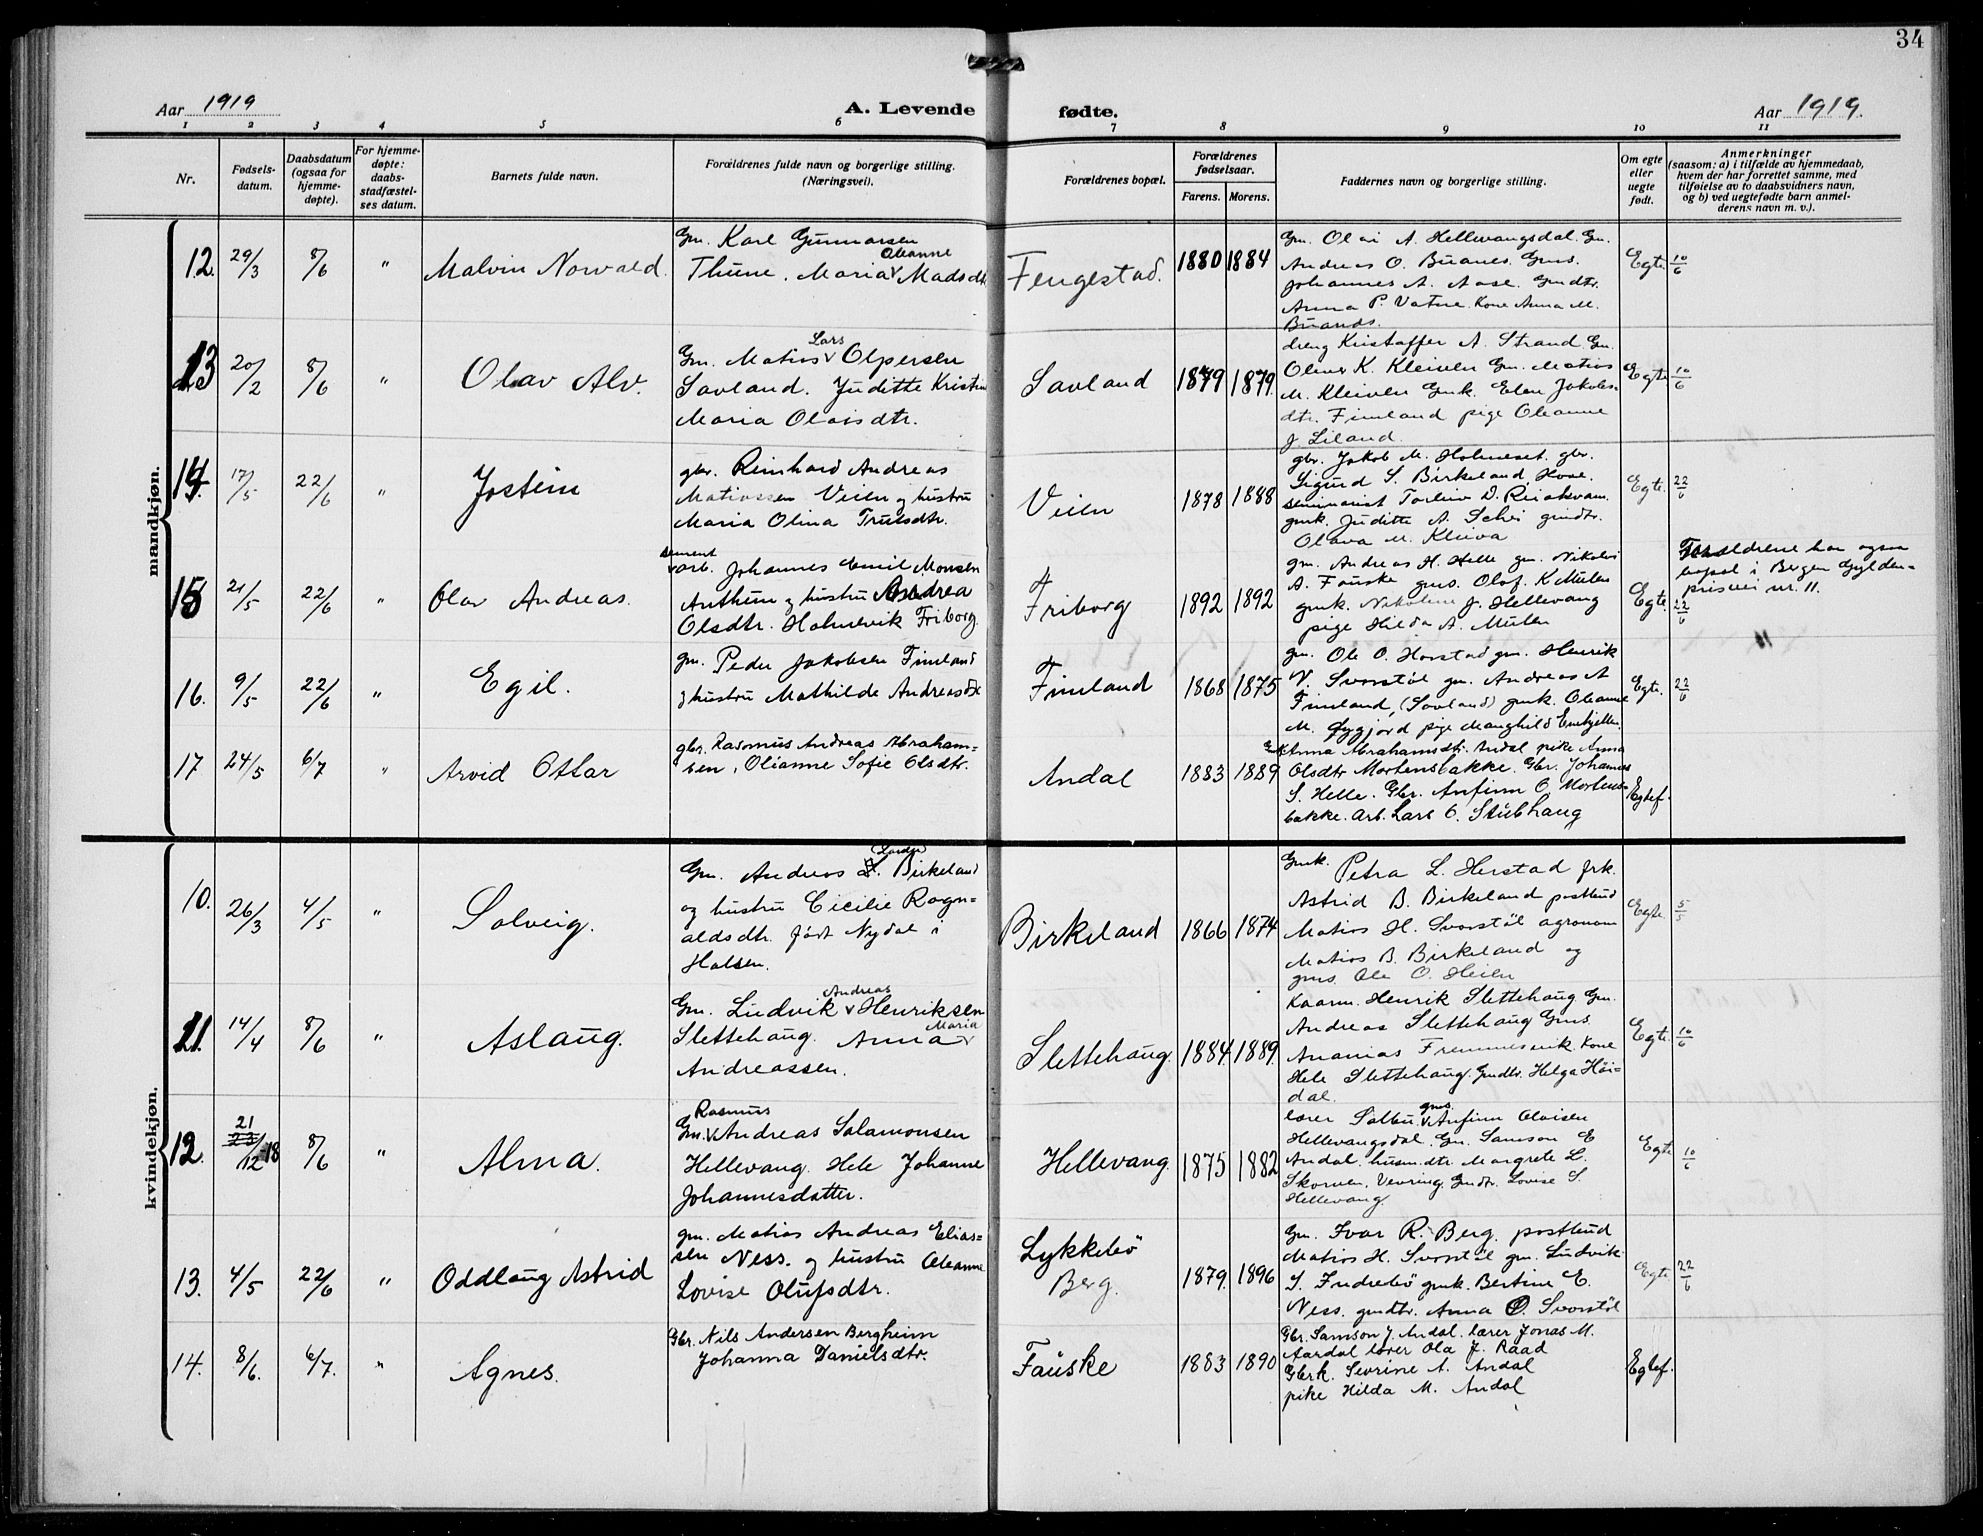 34
Aar 1919
A. Levende fødte.
Aar 1919.
1 2 3 4 5 6 7 8 9 10 11
Nr.
Fødsels-
datum.
Daabsdatum
(ogsaa for
hjemme-
døpte).
For hjemme-
døpte:
daabs-
stadfæstel-
ses datum.
Barnets fulde navn.
Forældrenes fulde navn og borgerlige stilling.
(Næringsvei).
Forældrenes bopæl.
Forældrenes
fødselsaar.
Farens. Morens.
Faddernes navn og borgerlige stilling.
Om egte
eller
uegte
født.
Anmerkninger
(saasom: a) i tilfælde av hjemmedaab,
hvem der har forrettet samme, med
tilføielse av to daabsvidners navn,
og b) ved uegtefødte barn anmel-
derens navn m. v.).
mandkjøn.
12. 29/3 8/6 " Malvin Norvald.
Gm. Karl Gunnarsen
Oleanne
Thune. Maria v Madsdtr.
Fengestad. 1880 1884
Gm. Olai A. Hellevangsdal. Gm.
Andreas O. Buanes. Gms.
Johannes A. Aase. Gmdtr.
Anna P. Vatne. Kone Anna M.
Buanes.
Egte. 10/6
13 20/2 8/6 " Olav Alv.
Lars
Gm. Matias v Olpersen
Savland. Juditte Kristine
Maria Olaisdtr.
Savland 1879 1879.
dreng Kristoffer A. Strand Gm.
Oliver K. Kleiven Gm. Matias
M. Kleiven Gmk. Elen Jakobs-
dtr. Fimland pige Oleanne
J. Liland.
Egte 10/6
14. 17/5 22/6 " Jostein
gbr. Reinhard Andreas
Matiassen Veien og hustru
Maria Olina Trulsdtr.
Veien 1878 1888
gbr. Jakob M. Holmeset. gbr.
Sigurd S. Birkeland, Hove.
seminarist Torleiv D. Reiaksvam.
gmk. Juditte A. Schei gmdtr.
Olava M. Kleiva
Egte. 22/6
15 21/5 22/6 " Olav Andreas.
sement
v arb. Johannes Emil Monsen
Anthun og hustru Andrea
Olsdtr. Holmevik Friborg.
Friborg 1892 1892
gm. Andreas H. Helle gm. Nikolai
A. Fauske gms. Olaf K Mulen
gmk. Nikoline J. Hellevang
pige Hilda A. Mulen
Egte. 22/6
Forældrene har ogsaa
bopæl i Bergen Gylden-
prisvei nr. 11.
16. 9/5 22/6 " Egil.
gm. Peder Jakobsen Fimland
og hustru Mathilde Andreasdtr
Fimland 1868 1875
gm. Ole O. Horstad gm. Henrik
N. Svorstøl gm. Andreas A
Fimland, (Savland) gmk. Oleanne
M. Øygjord pige Manghild
Egte. 22/6
17 24/5 6/7 " Arvid Ottar
gbr. Rasmus Andreas Abraham-
sen, Olianne Sofie Olsdtr.
Andal 1883 1889
Anna Abrahamsdtr. Andal pike Anna
Olsdtr Mortensbakke. Gbr. Johannes
S. Helle. Gbr. Anfinn O. Mortens-
bakke. Arb. Lars O. Stubhaug
Egtef.
kvindekjøn.
10. 26/3 4/5 " Solveig.
Gm. Andreas Birkeland
og hustru Cicilie Rogn-
aldsdtr. født Nydal i
Holsen.
Birkeland 1866 1874
Gmk. Petra L. Herstad frk.
Astrid B. Birkeland postbud
Matias H. Svorstøl agronom
Matias B. Birkeland og
gms. Ole O. Heilen
Egte. 5/5
11. 14/4 8/6 " Aslaug.
Andreas
Gm. Ludvik v Henriksen
Slettehaug. Anna v Maria
Andreassen.
Slettehaug. 1884 1889.
Kaarm. Henrik Slettehaug Gm.
Andreas Slettehaug Gms.
Ananias Fremmesvik. Kone
Hele Slettehaug. Gmdtr. Helga Høi-
dal.
Egte. 10/6
12. 21 23/12-18 8/6 " Alma.
Rasmus
Gm. v Andreas Salamonsen
Hellevang. Hele Johanne
Johannesdatter.
Hellevang. 1875 1882
lærer Solbu. gms. v Anfinn Olaisen
Hellevangsdal. Gm. Samson E
Andal. husmdtr. Margrete L.
Skorven. Vevring. Gmdtr. Lovise S.
Hellevang.
Egte 10/6
13. 4/5 22/6 " Oddlaug Astrid
gm. Matias Andreas Elias-
sen Ness. og hustru Oleanne
Lovise Olufsdtr.
Lykkebö
Berg. 1879. 1896
Gm. Ivar R. Berg. postbud
Matias H. Svorstøl gm. Ludvik
S. Indrebö gmk. Bertine E.
Ness. gmdtr. Anna O. Svorstøl
Egte 22/6
14. 8/6. 6/7. " Agnes.
Gbr. Nils Andersen Bergheim
Johanna Danielsdtr.
Fauske 1883 1890
Gbr. Samson J. Andal. lærer Jonas M.
Aardal lærer Ola J. Raad
Gbrk. Sevrine A. Andal
pike Hilda M. Andal
Egtef.